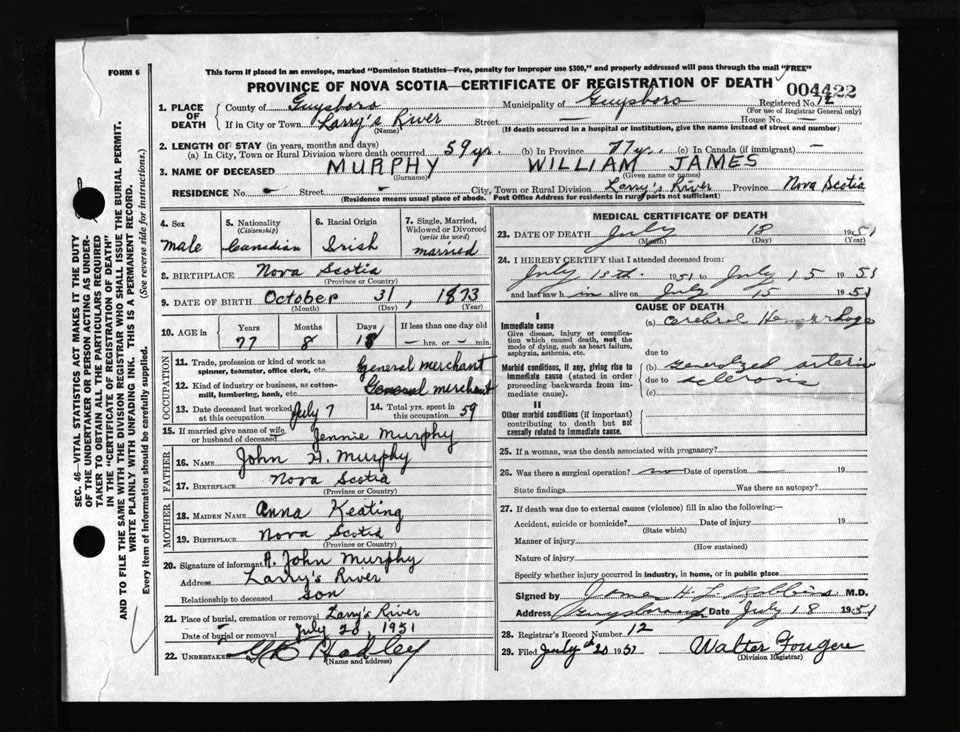 FORM 6
This form if placed in an envelope, marked "Dominion Statistics—Free, penalty for improper use $300," and properly addressed will pass through the mail "FREE"
PROVINCE OF NOVA SCOTIA—CERTIFICATE OF REGISTRATION OF DEATH
004422
1. PLACE OF DEATH
County of Guysboro Municipality of Guysboro Registered No. 12
(For use of Registrar General only)
If in City or Town Larry's River Street — House No. —
(Name) (If death occurred in a hospital or institution, give the name instead of street and number)
2. LENGTH OF STAY (in years, months and days)
(a) In City, Town or Rural Division where death occurred 59 yr. (b) In Province 77 y. (c) In Canada (if immigrant) —
3. NAME OF DECEASED MURPHY WILLIAM JAMES
(Surname) (Given name or names)
RESIDENCE No. - Street - City, Town or Rural Division Larry's River Province Nova Scotia
(Residence means usual place of abode. Post Office Address for residents in rural parts not sufficient)
4. Sex
male
5. Nationality
(Citizenship)
Canadian
6. Racial Origin
Irish
7. Single, Married, Widowed or Divorced
(write the word)
married
8. BIRTHPLACE Nova Scotia
(Province or Country)
9. DATE OF BIRTH October 31, 1873
(Month) (Day) (Year)
10. AGE in
Years Months Days If less than one day old
77 8 18 — hrs. or — min.
OCCUPATION
11. Trade, profession or kind of work as spinner, teamster, office clerk, etc. General merchant
12. Kind of industry or business, as cotton-mill, lumbering, bank, etc. General merchant
13. Date deceased last worked at this occupation July 7
14. Total yrs. spent in this occupation 59
15. If married give name of wife or husband of deceased Jennie Murphy
FATHER
16. NAME John H. Murphy
17. BIRTHPLACE Nova Scotia
(Province or Country)
MOTHER
18. MAIDEN NAME Anna Keating
19. BIRTHPLACE Nova Scotia
(Province or Country)
20. Signature of informant A. John Murphy
Address Larry's River
Relationship to deceased Son
21. Place of burial, cremation or removal Larry's River
Date of burial or removal July 20 1951
22. UNDERTAKER Hadley
(Name and address)
MEDICAL CERTIFICATE OF DEATH
23. DATE OF DEATH July 18 1951
(Month) (Day) (Year)
24. I HEREBY CERTIFY that I attended deceased from:
July 13th. 1951 to July 15 1951
and last saw him alive on July 15 1951
CAUSE OF DEATH
I
Immediate cause
Give disease, injury or complication which caused death, not the mode of dying, such as heart failure, asphyxia, asthenia, etc.
(a) Cerebral Hemorrhage
due to
Morbid conditions, if any, giving rise to immediate cause (stated in order proceeding backwards from immediate cause).
(b) generalized arterio
due to sclerosis
(c)
II
Other morbid conditions (if important) contributing to death but not causally related to immediate cause.
25. If a woman, was the death associated with pregnancy?
26. Was there a surgical operation? no Date of operation — 19
State findings Was there an autopsy?
27. If death was due to external causes (violence) fill in also the following:—
Accident, suicide or homicide? Date of injury 19
(State which)
Manner of injury
(How sustained)
Nature of injury
Specify whether injury occurred in industry, in home, or in public place
Signed by James H. L. Robbins M.D.
Address Guysborough Date July 18 1951
28. Registrar's Record Number 12
29. Filed July 20 1951 Walter Fougere
(Division Registrar)
SEC. 46—VITAL STATISTICS ACT MAKES IT THE DUTY
OF THE UNDERTAKER OR PERSON ACTING AS UNDER-
TAKER TO OBTAIN ALL THE PARTICULARS REQUIRED
IN THE "CERTIFICATE OF REGISTRATION OF DEATH"
AND TO FILE THE SAME WITH THE DIVISION REGISTRAR WHO SHALL ISSUE THE BURIAL PERMIT.
WRITE PLAINLY WITH UNFADING INK. THIS IS A PERMANENT RECORD.
Every item of information should be carefully supplied. (See reverse side for instructions.)